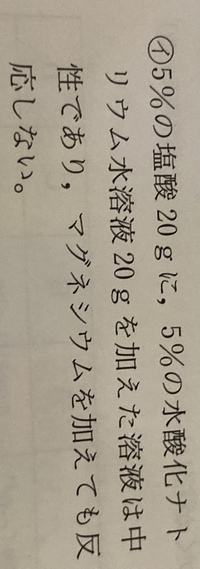 ㋑5%の塩酸20gに，5%の水酸化ナト
リウム水溶液20gを加えた溶液は中
性であり，マグネシウムを加えても反
応しない。